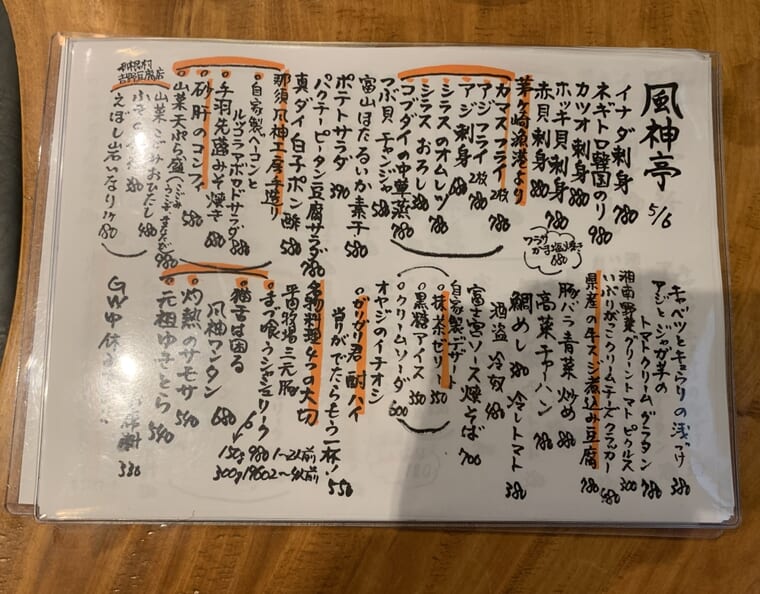 風神亭 5/6
イナダ刺身 780
ネギトロ韓国のり 980
カツオ刺身 780
ホッキ貝刺身 780
赤貝刺身 780
茅ヶ崎漁港より
カマスフライ 2枚 780
アジフライ 2枚 780
アジ刺身 680
シラスのオムレツ 780
シラスおろし 380
コブダイの中華蒸 780
つぶ貝チャンジャ 580
富山ほたるいか素干 580
ポテトサラダ 390
パクチーピータン豆腐サラダ 780
真ダイ白子ポン酢 580
那須風神工房手造り
自家製ベーコンと
ルッコラアボカドサラダ 880
手羽先踏みそ焼き 680
砂肝のコンフィ 580
山菜天ぷら盛 980
山菜こごみおひたし 480
えぼし岩いなり 1ケ 80
ワラサかま塩焼き 680
キャベツとキュウリの浅づけ 380
アジとジャガ芋の
トマトクリームグラタン 780
湘南野菜グリーントマトピクルス 300
いぶりがっこクリームチーズクラッカー 480
県産の牛スジ煮込み豆腐 780
豚バラ青菜炒め 880
高菜チャーハン 780
鯛めし 380 冷しトマト 380
酒盗冷奴 480
富士宮ソース焼そば 700
自家製デザート
抹茶ゼリー 350
黒糖アイス 350
クリームソーダ 600
オヤジのイチオシ
ガリガリ君酎ハイ
当りがでたらもう一杯! 550
名物料理4つの大切
平田牧場三元豚
まづ喰うシャシューリーク
150g 980 1〜2人前
300g 1960 2〜4人前
猫舌は困る
風神ワンタン 680
灼熱のサモサ 540
元祖ゆきとら 540
GW中休
席料 330